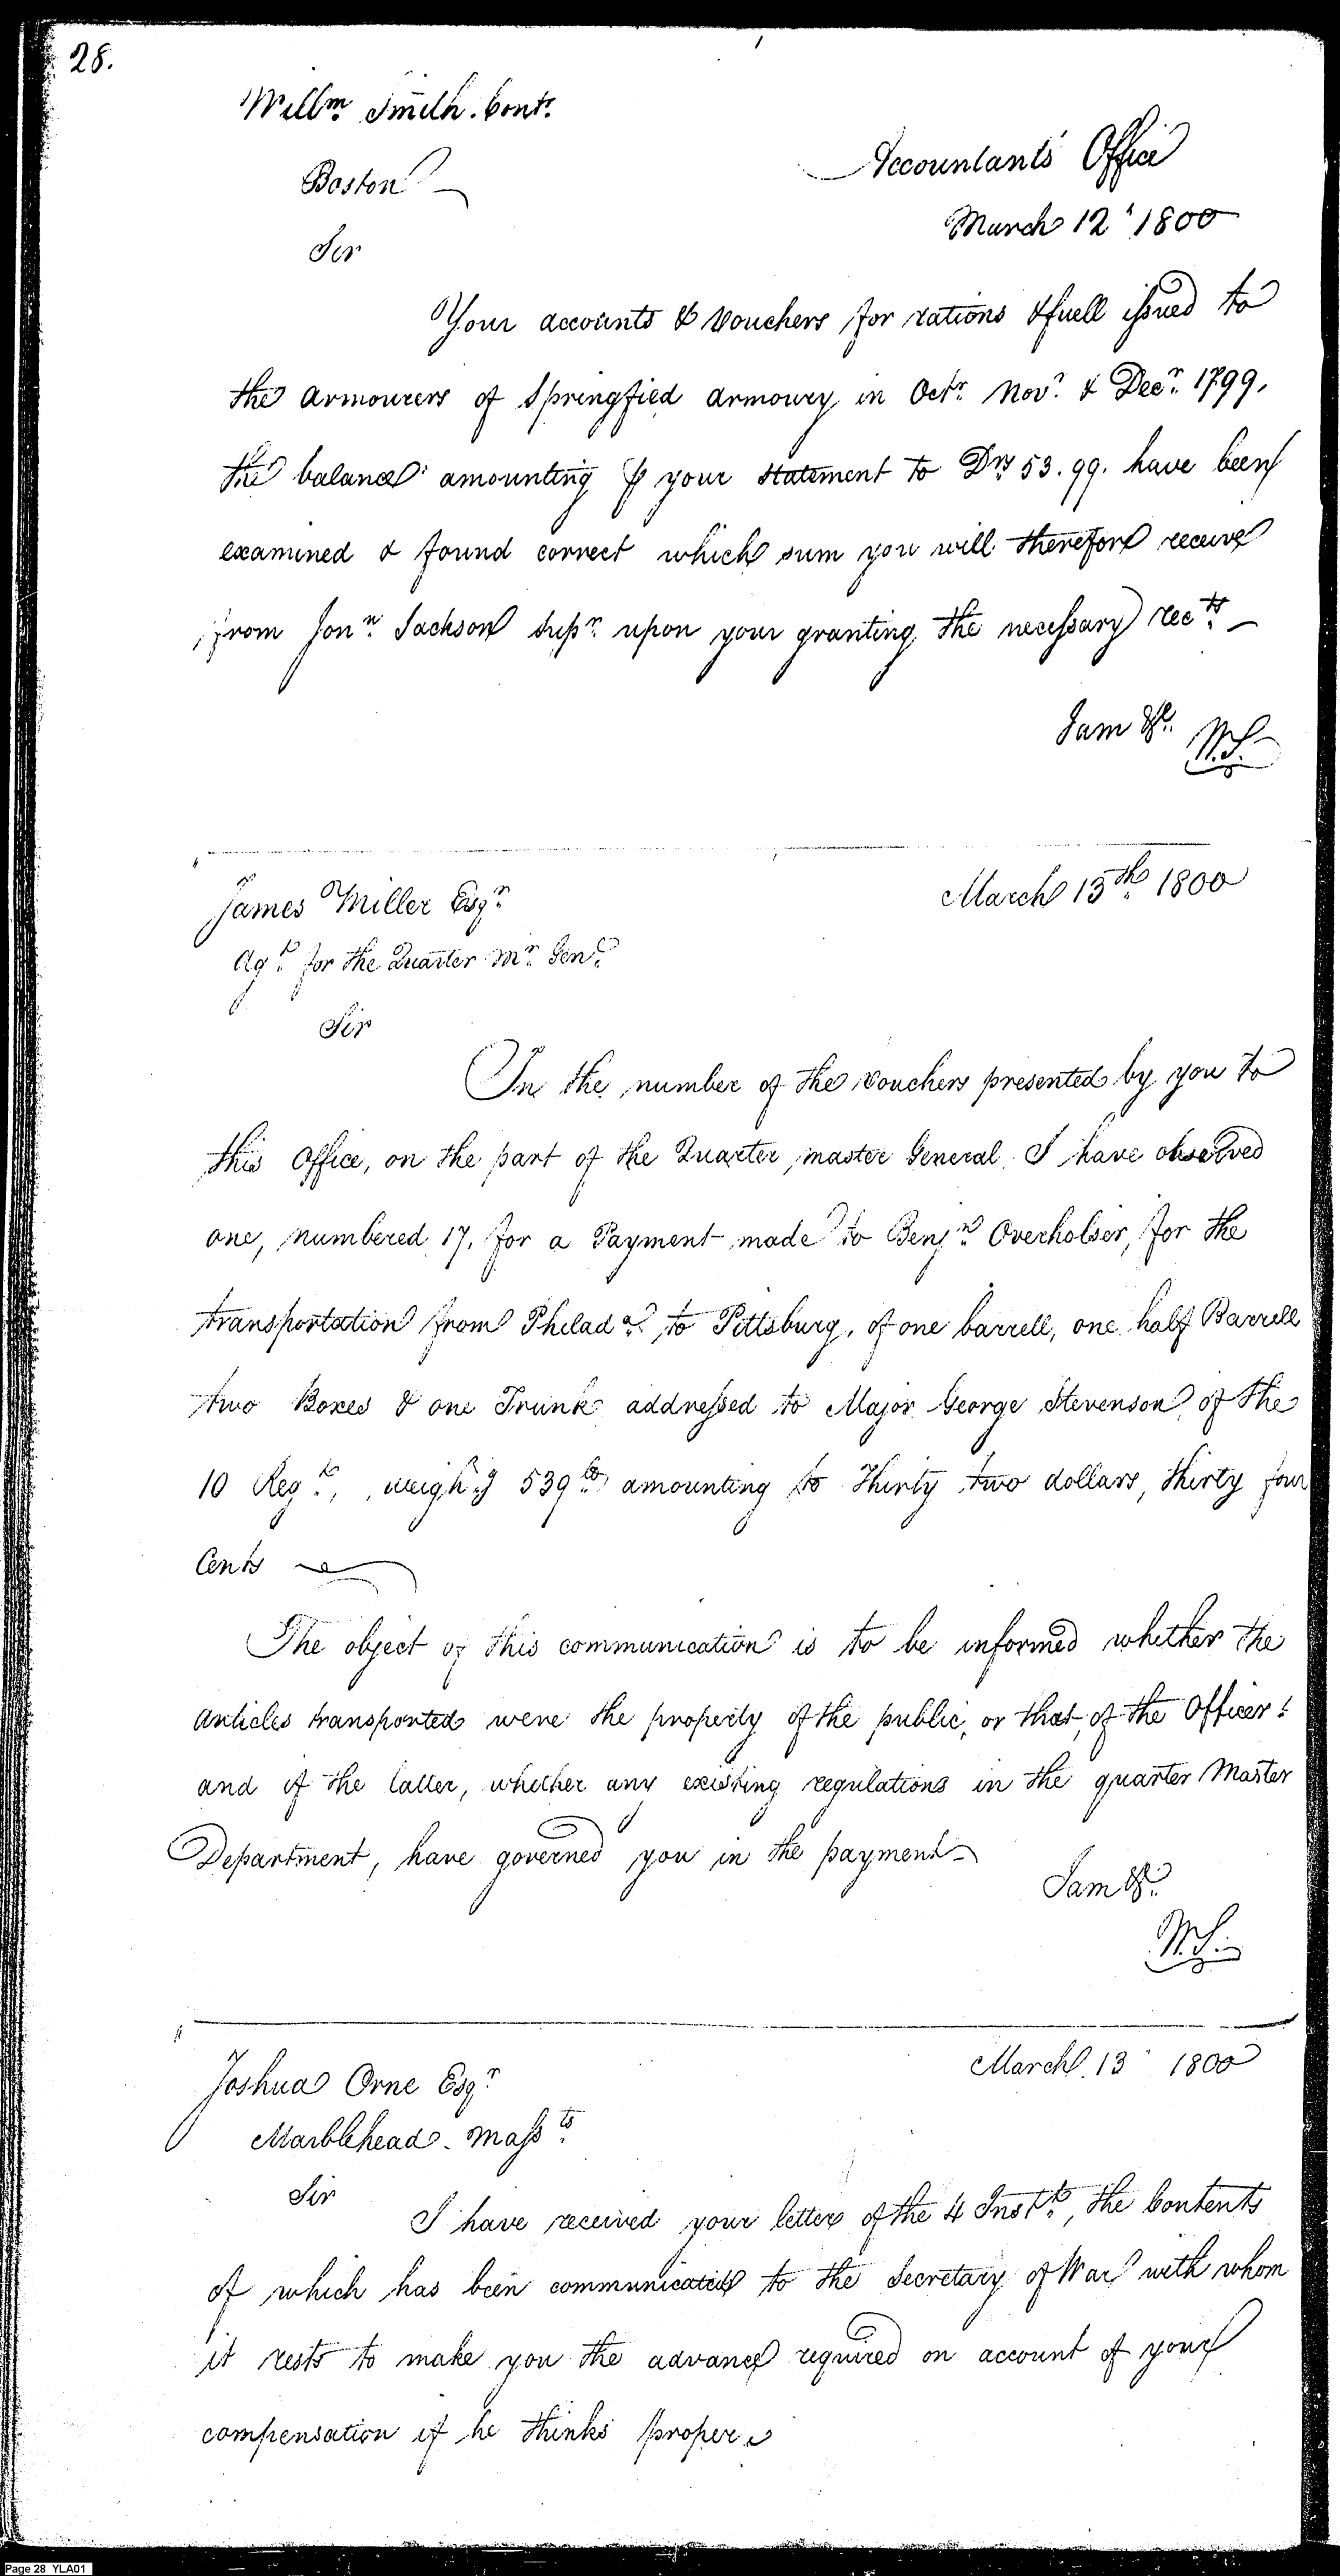 28.
Willm. Smith. Contr.
Accountants Office
Boston
March 12 1800
Sir
Your accounts & vouchers for rations & fuell issued to
the armourers of Springfied armoury in Octr. Novr. & Decr. 1799,
the balance amounting pr your statement to Drs 53.99. have been
examined & found correct which sum you will therefore receive
from Jonn. Jackson Supr. upon your granting the necessary rects.
I am &c.
W.S.
March 13th. 1800
James Miller Esqr.
Agt. for the Quarter Mr. Genl.
Sir
In the number of the vouchers presented by you to
this Office, on the part of the Quarter master General, I have observed
one, numbered 17, for a Payment made to Benjn. Overholser, for the
transportation from Philada. to Pittsburg, of one barrell, one half Barrell
two Boxes & one Trunk addressed to Major George Stevenson of the
10 Regt., weighg. 539 lb amounting to Thirty two dollars, thirty four
Cents
The object of this communication is to be informed whether the
articles transported were the property of the public, or that, of the Officer:
and if the latter, whether any existing regulations in the quarter Master
Department, have governed you in the payment
I am &c.
W.S.
March 13 1800
Joshua Orne Esqr.
Marblehead. Massts.
Sir
I have received your letter of the 4 Instt., the Contents
of which has been communicated to the Secretary of War with whom
it rests to make you the advance required on account of your
compensation if he thinks proper
Page 28 YLA01